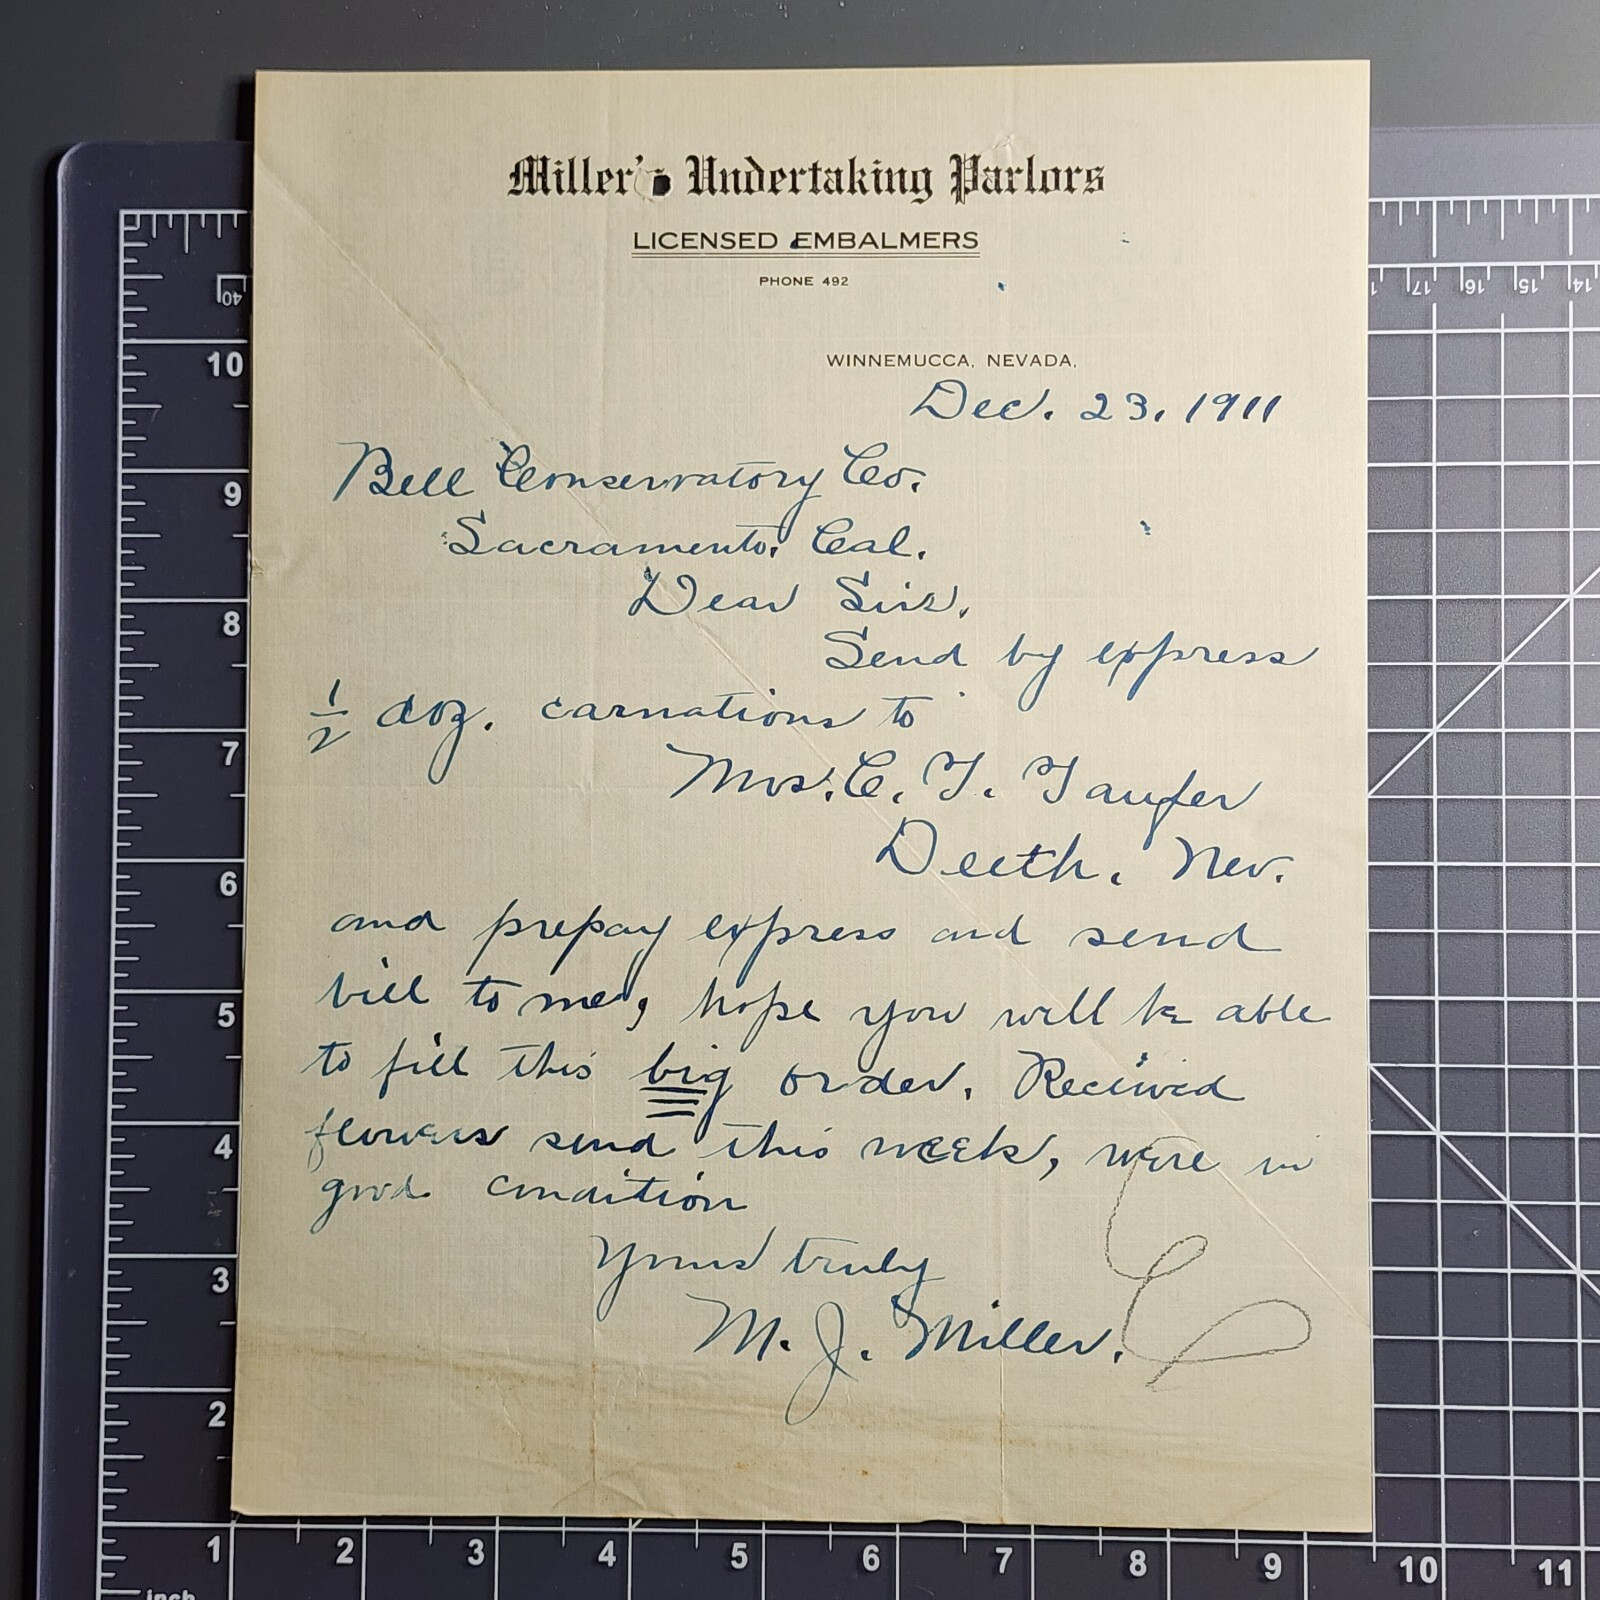 Miller's Undertaking Parlors
LICENSED EMBALMERS
PHONE 492
WINNEMUCCA, NEVADA,
Dec. 23, 1911
Bell Conservatory Co.
Sacramento, Cal.
Dear Sirs,
Send by express
1/2 doz. carnations to
Mrs. C. T. Taufer
Deeth, Nev.
and prepay express and send
bill to me, hope you will be able
to fill this big order. Received
flowers send this week, were in
good condition
Yours truly
M. J. Miller.
40
10
9
8
7
6
5
4
3
2
1 2 3 4 5 6 7 8 9 10 11
inch
17 16 15 14